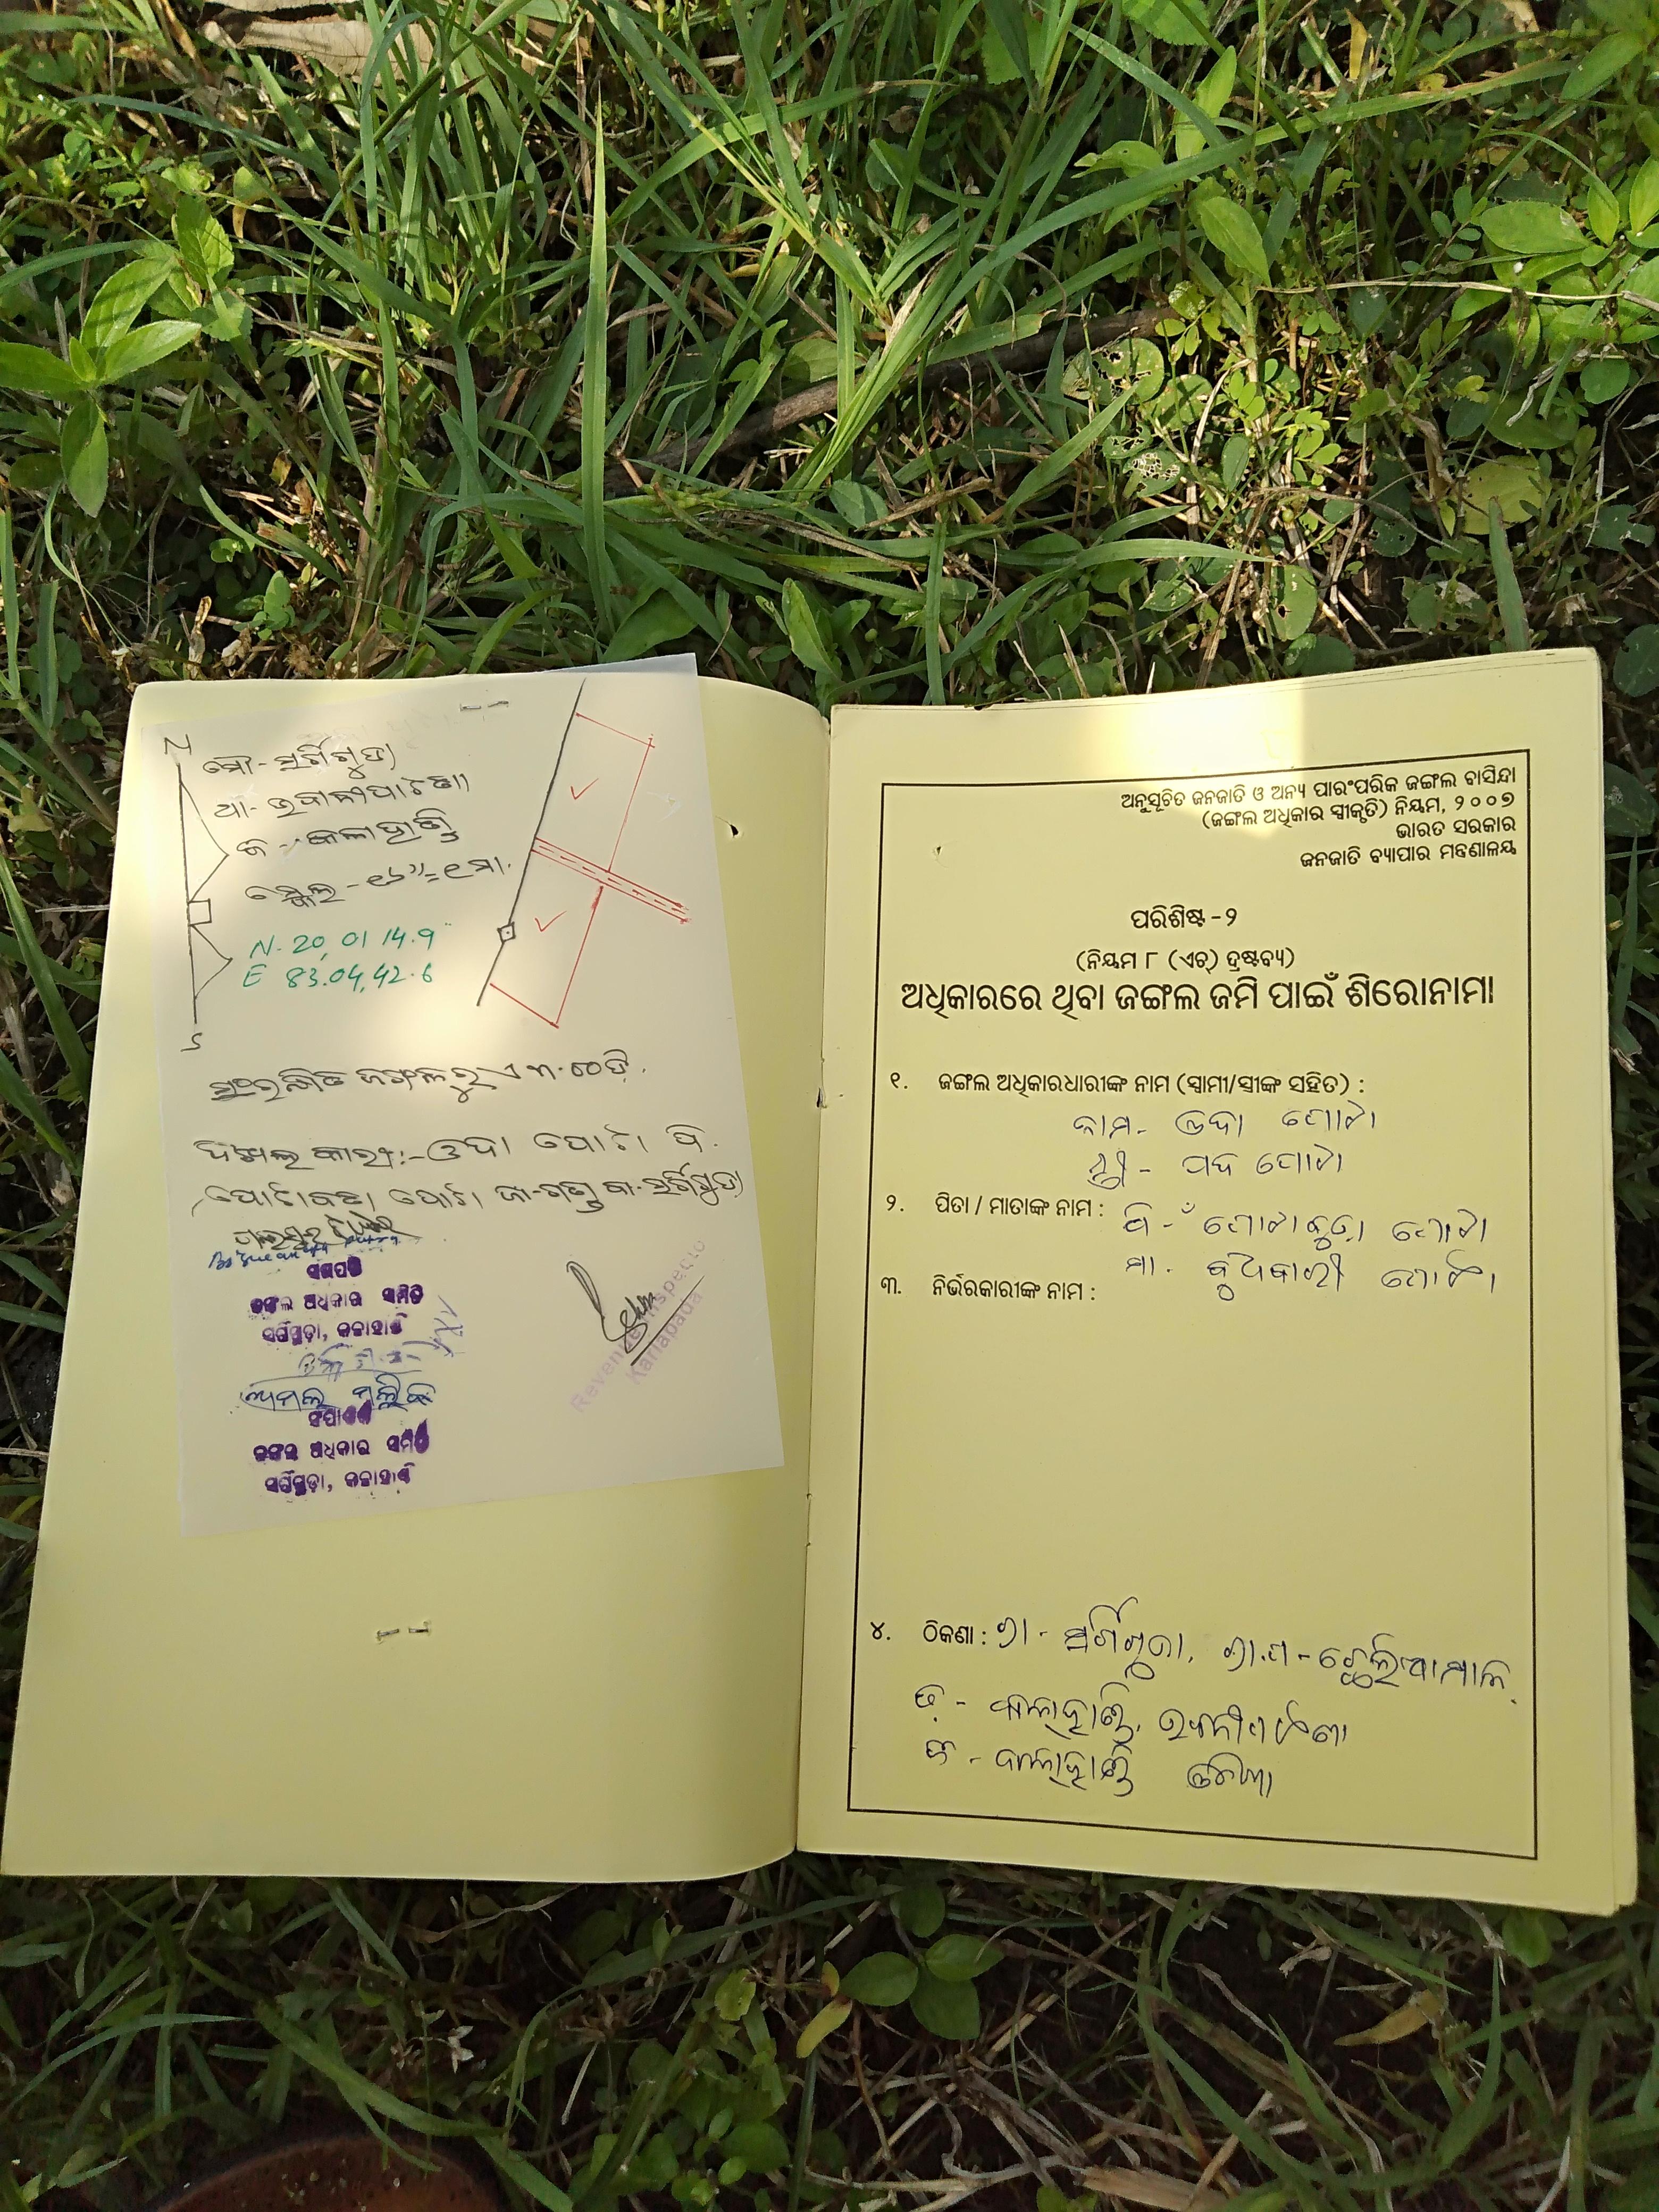 N
ମୌ - ସର୍ଗିଗୁଡା
ଥା - ଭବାନୀପାଟଣା
ଜି - କଳାହାଣ୍ଡି
ସ୍କେଲ - ୧୬"=୧ ମା.
N- 20, 01 14.9
E 83.04,42.6
S
ଜଙ୍ଗଲରୁ ଏ ୩.୦୦ଡି.
ଦଖଲକାରୀ:- ଓଦା ପୋଟା ପି.
ପୋଟା ଜା-ଗଣ୍ଡ ସା-ସର୍ଗିଗୁଡା
ସଭାପତି
ଜଙ୍ଗଲ ଅଧିକାର ସମିତି
ସର୍ଗିଗୁଡ଼ା, କଳାହାଣ୍ଡି
ମଲ୍ଲିକ
ସଂପାଦକ
ଜଙ୍ଗଲ ଅଧିକାର ସମିତି
ସର୍ଗିଗୁଡ଼ା, କଳାହାଣ୍ଡି
Revenue Inspector
Karlapada
ଅନୁସୂଚିତ ଜନଜାତି ଓ ଅନ୍ୟ ପାରଂପରିକ ଜଙ୍ଗଲ ବାସିନ୍ଦା
(ଜଙ୍ଗଲ ଅଧିକାର ସ୍ୱୀକୃତି) ନିୟମ, ୨୦୦୭
ଭାରତ ସରକାର
ଜନଜାତି ବ୍ୟାପାର ମନ୍ତ୍ରଣାଳୟ
ପରିଶିଷ୍ଟ - ୨
(ନିୟମ ୮ (ଏଚ୍) ଦ୍ରଷ୍ଟବ୍ୟ)
ଅଧିକାରରେ ଥିବା ଜଙ୍ଗଲ ଜମି ପାଇଁ ଶିରୋନାମା
୧. ଜଙ୍ଗଲ ଅଧିକାରଧାରୀଙ୍କ ନାମ (ସ୍ୱାମୀ/ସ୍ତ୍ରୀଙ୍କ ସହିତ) :
ନାମ - ଓଦା ପୋଟା
ସ୍ତ୍ରୀ - ପୋଟା
୨. ପିତା / ମାତାଙ୍କ ନାମ : ପି - ପୋଟା
ମା - ବୁଧବାରୀ ପୋଟା
୩. ନିର୍ଭରକାରୀଙ୍କ ନାମ :
୪. ଠିକଣା : ଗ୍ରା - ସର୍ଗିଗୁଡା, ଗ୍ରା.ପ -
ତ - କଳାହାଣ୍ଡି, ଭବାନୀପାଟଣା
ଜି - କଳାହାଣ୍ଡି ଓଡିଶା